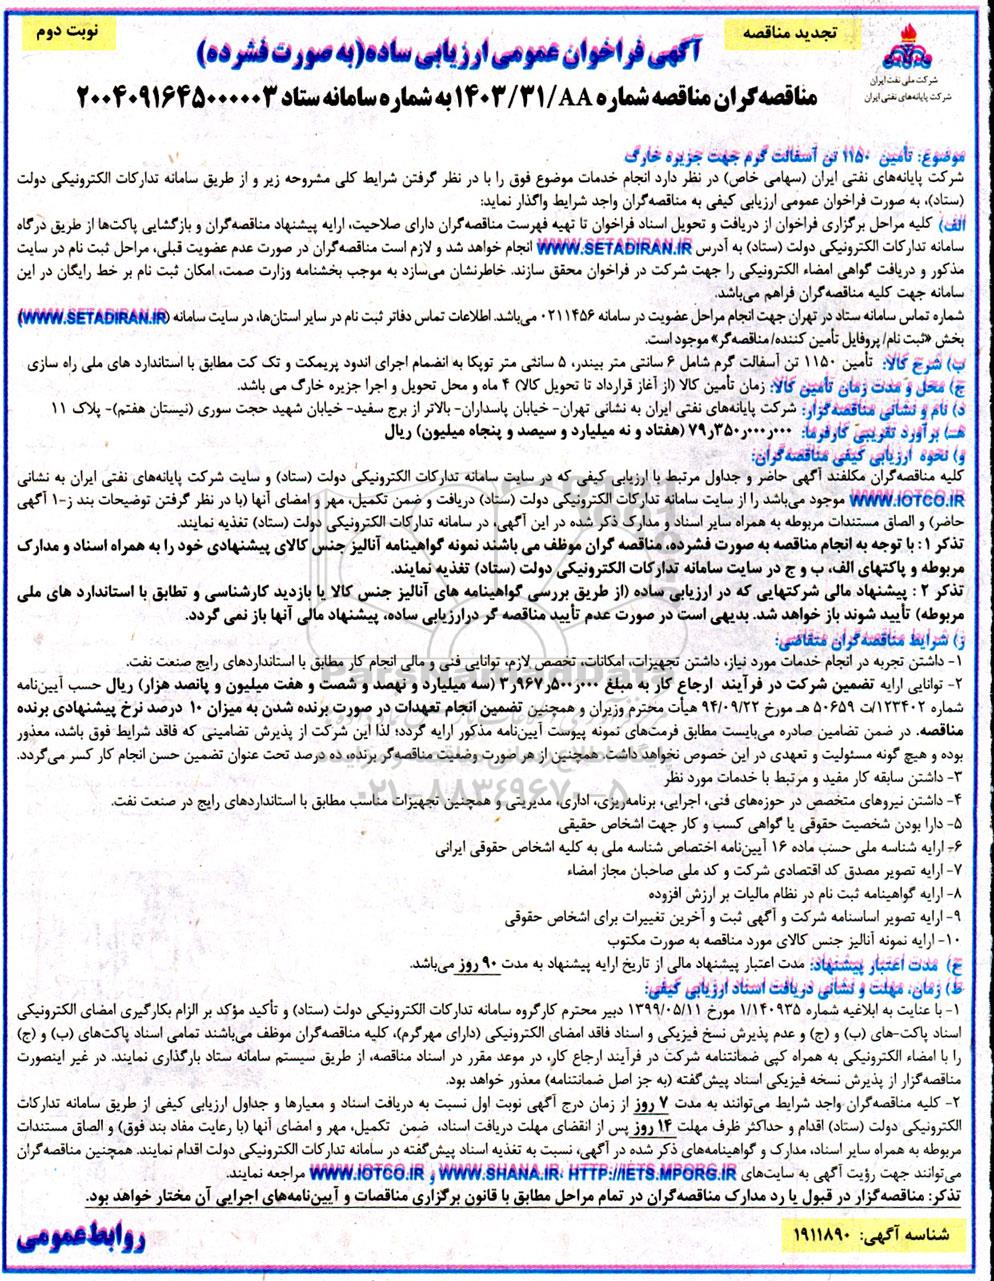 تجدید مناقصه
نوبت دوم
شرکت ملی نفت ایران
شرکت پایانه‌های نفتی ایران
آگهی فراخوان عمومی ارزیابی ساده(به صورت فشرده)
مناقصه‌گران مناقصه شماره ۱۴۰۳/۳۱/AA به شماره سامانه ستاد ۲۰۰۴۰۹۱۶۴۵۰۰۰۰۰۳
موضوع: تأمین ۱۱۵۰ تن آسفالت گرم جهت جزیره خارگ
شرکت پایانه‌های نفتی ایران (سهامی خاص) در نظر دارد انجام خدمات موضوع فوق را با در نظر گرفتن شرایط کلی مشروحه زیر و از طریق سامانه تدارکات الکترونیکی دولت
(ستاد)، به صورت فراخوان عمومی ارزیابی کیفی به مناقصه‌گران واجد شرایط واگذار نماید:
الف) کلیه مراحل برگزاری فراخوان از دریافت و تحویل اسناد فراخوان تا تهیه فهرست مناقصه‌گران دارای صلاحیت، ارایه پیشنهاد مناقصه‌گران و بازگشایی پاکت‌ها از طریق درگاه
سامانه تدارکات الکترونیکی دولت (ستاد) به آدرس WWW.SETADIRAN.IR انجام خواهد شد و لازم است مناقصه‌گران در صورت عدم عضویت قبلی، مراحل ثبت نام در سایت
مذکور و دریافت گواهی امضاء الکترونیکی را جهت شرکت در فراخوان محقق سازند. خاطرنشان می‌سازد به موجب بخشنامه وزارت صمت، امکان ثبت نام بر خط رایگان در این
سامانه جهت کلیه مناقصه‌گران فراهم می‌باشد.
شماره تماس سامانه ستاد در تهران جهت انجام مراحل عضویت در سامانه ۰۲۱۱۴۵۶ می‌باشد. اطلاعات تماس دفاتر ثبت نام در سایر استان‌ها، در سایت سامانه (WWW.SETADIRAN.IR)
بخش «ثبت نام/ پروفایل تأمین کننده/ مناقصه‌گر» موجود است.
ب) شرح کالا: تأمین ۱۱۵۰ تن آسفالت گرم شامل ۶ سانتی متر بیندر، ۵ سانتی متر توپکا به انضمام اجرای اندود پریمکت و تک کت مطابق با استاندارد های ملی راه سازی
ج) محل و مدت زمان تأمین کالا: زمان تأمین کالا (از آغاز قرارداد تا تحویل کالا) ۴ ماه و محل تحویل و اجرا جزیره خارگ می باشد.
د) نام و نشانی مناقصه‌گزار: شرکت پایانه‌های نفتی ایران به نشانی تهران- خیابان پاسداران- بالاتر از برج سفید- خیابان شهید حجت سوری (نیستان هفتم)- پلاک ۱۱
هـ) برآورد تقریبی کارفرما: ۷۹٫۳۵۰٫۰۰۰٫۰۰۰ (هفتاد و نه میلیارد و سیصد و پنجاه میلیون) ریال
و) نحوه ارزیابی کیفی مناقصه‌گران:
کلیه مناقصه‌گران مکلفند آگهی حاضر و جداول مرتبط با ارزیابی کیفی که در سایت سامانه تدارکات الکترونیکی دولت (ستاد) و سایت شرکت پایانه‌های نفتی ایران به نشانی
WWW.IOTCO.IR موجود می‌باشد را از سایت سامانه تدارکات الکترونیکی دولت (ستاد) دریافت و ضمن تکمیل، مهر و امضای آنها (با در نظر گرفتن توضیحات بند ز-۱ آگهی
حاضر) و الصاق مستندات مربوطه به همراه سایر اسناد و مدارک ذکر شده در این آگهی، در سامانه تدارکات الکترونیکی دولت (ستاد) تغذیه نمایند.
تذکر ۱: با توجه به انجام مناقصه به صورت فشرده، مناقصه گران موظف می باشند نمونه گواهینامه آنالیز جنس کالای پیشنهادی خود را به همراه اسناد و مدارک
مربوطه و پاکتهای الف، ب و ج در سایت سامانه تدارکات الکترونیکی دولت (ستاد) تغذیه نمایند.
تذکر ۲ : پیشنهاد مالی شرکتهایی که در ارزیابی ساده (از طریق بررسی گواهینامه های آنالیز جنس کالا یا بازدید کارشناسی و تطابق با استاندارد های ملی
مربوطه) تأیید شوند باز خواهد شد. بدیهی است در صورت عدم تأیید مناقصه گر درارزیابی ساده، پیشنهاد مالی آنها باز نمی گردد.
ز) شرایط مناقصه‌گران متقاضی:
۱- داشتن تجربه در انجام خدمات مورد نیاز، داشتن تجهیزات، امکانات، تخصص لازم، توانایی فنی و مالی انجام کار مطابق با استانداردهای رایج صنعت نفت.
۲- توانایی ارایه تضمین شرکت در فرآیند ارجاع کار به مبلغ ۳٫۹۶۷٫۵۰۰٫۰۰۰ (سه میلیارد و نهصد و شصت و هفت میلیون و پانصد هزار) ریال حسب آیین‌نامه
شماره ۱۲۳۴۰۲/ت ۵۰۶۵۹ هـ مورخ ۹۴/۰۹/۲۲ هیأت محترم وزیران و همچنین تضمین انجام تعهدات در صورت برنده شدن به میزان ۱۰ درصد نرخ پیشنهادی برنده
مناقصه. در ضمن تضامین صادره می‌بایست مطابق فرمت‌های نمونه پیوست آیین‌نامه مذکور ارایه گردد؛ لذا این شرکت از پذیرش تضامینی که فاقد شرایط فوق باشد، معذور
بوده و هیچ گونه مسئولیت و تعهدی در این خصوص نخواهد داشت. همچنین از هر صورت وضعیت مناقصه‌گر برنده، ده درصد تحت عنوان تضمین حسن انجام کار کسر می‌گردد.
۳- داشتن سابقه کار مفید و مرتبط با خدمات مورد نظر
۴- داشتن نیروهای متخصص در حوزه‌های فنی، اجرایی، برنامه‌ریزی، اداری، مدیریتی و همچنین تجهیزات مناسب مطابق با استانداردهای رایج در صنعت نفت.
۵- دارا بودن شخصیت حقوقی یا گواهی کسب و کار جهت اشخاص حقیقی
۶- ارایه شناسه ملی حسب ماده ۱۶ آیین‌نامه اختصاص شناسه ملی به کلیه اشخاص حقوقی ایرانی
۷- ارایه تصویر مصدق کد اقتصادی شرکت و کد ملی صاحبان مجاز امضاء
۸- ارایه گواهینامه ثبت نام در نظام مالیات بر ارزش افزوده
۹- ارایه تصویر اساسنامه شرکت و آگهی ثبت و آخرین تغییرات برای اشخاص حقوقی
۱۰- ارایه نمونه آنالیز جنس کالای مورد مناقصه به صورت مکتوب
ح) مدت اعتبار پیشنهاد: مدت اعتبار پیشنهاد مالی از تاریخ ارایه پیشنهاد به مدت ۹۰ روز می‌باشد.
ط) زمان، مهلت و نشانی دریافت اسناد ارزیابی کیفی:
۱- با عنایت به ابلاغیه شماره ۱/۱۴۰۹۳۵ مورخ ۱۳۹۹/۰۵/۱۱ دبیر محترم کارگروه سامانه تدارکات الکترونیکی دولت (ستاد) و تأکید مؤکد بر الزام بکارگیری امضای الکترونیکی
اسناد پاکت-های (ب) و (ج) و عدم پذیرش نسخ فیزیکی و اسناد فاقد امضای الکترونیکی (دارای مهرگرم)، کلیه مناقصه‌گران موظف می‌باشند تمامی اسناد پاکت‌های (ب) و (ج)
را با امضاء الکترونیکی به همراه کپی ضمانتنامه شرکت در فرآیند ارجاع کار، در موعد مقرر در اسناد مناقصه، از طریق سیستم سامانه ستاد بارگذاری نمایند. در غیر اینصورت
مناقصه‌گزار از پذیرش نسخه فیزیکی اسناد پیش‌گفته (به جز اصل ضمانتنامه) معذور خواهد بود.
۲- کلیه مناقصه‌گران واجد شرایط می‌توانند به مدت ۷ روز از زمان درج آگهی نوبت اول نسبت به دریافت اسناد و معیارها و جداول ارزیابی کیفی از طریق سامانه تدارکات
الکترونیکی دولت (ستاد) اقدام و حداکثر ظرف مهلت ۱۴ روز پس از انقضای مهلت دریافت اسناد، ضمن تکمیل، مهر و امضای آنها (با رعایت مفاد بند فوق) و الصاق مستندات
مربوطه به همراه سایر اسناد، مدارک و گواهینامه‌های ذکر شده در آگهی، نسبت به تغذیه اسناد پیش‌گفته در سامانه تدارکات الکترونیکی دولت اقدام نمایند. همچنین مناقصه‌گران
می‌توانند جهت رؤیت آگهی به سایت‌های HTTP://IETS.MPORG.IR ،WWW.SHANA.IR و WWW.IOTCO.IR مراجعه نمایند.
تذکر: مناقصه‌گزار در قبول یا رد مدارک مناقصه‌گران در تمام مراحل مطابق با قانون برگزاری مناقصات و آیین‌نامه‌های اجرایی آن مختار خواهد بود.
شناسه آگهی: ۱۹۱۱۸۹۰
روابط عمومی
ParsNamadData
۰۲۱-۸۸۳۴۹۶۷۰-۵